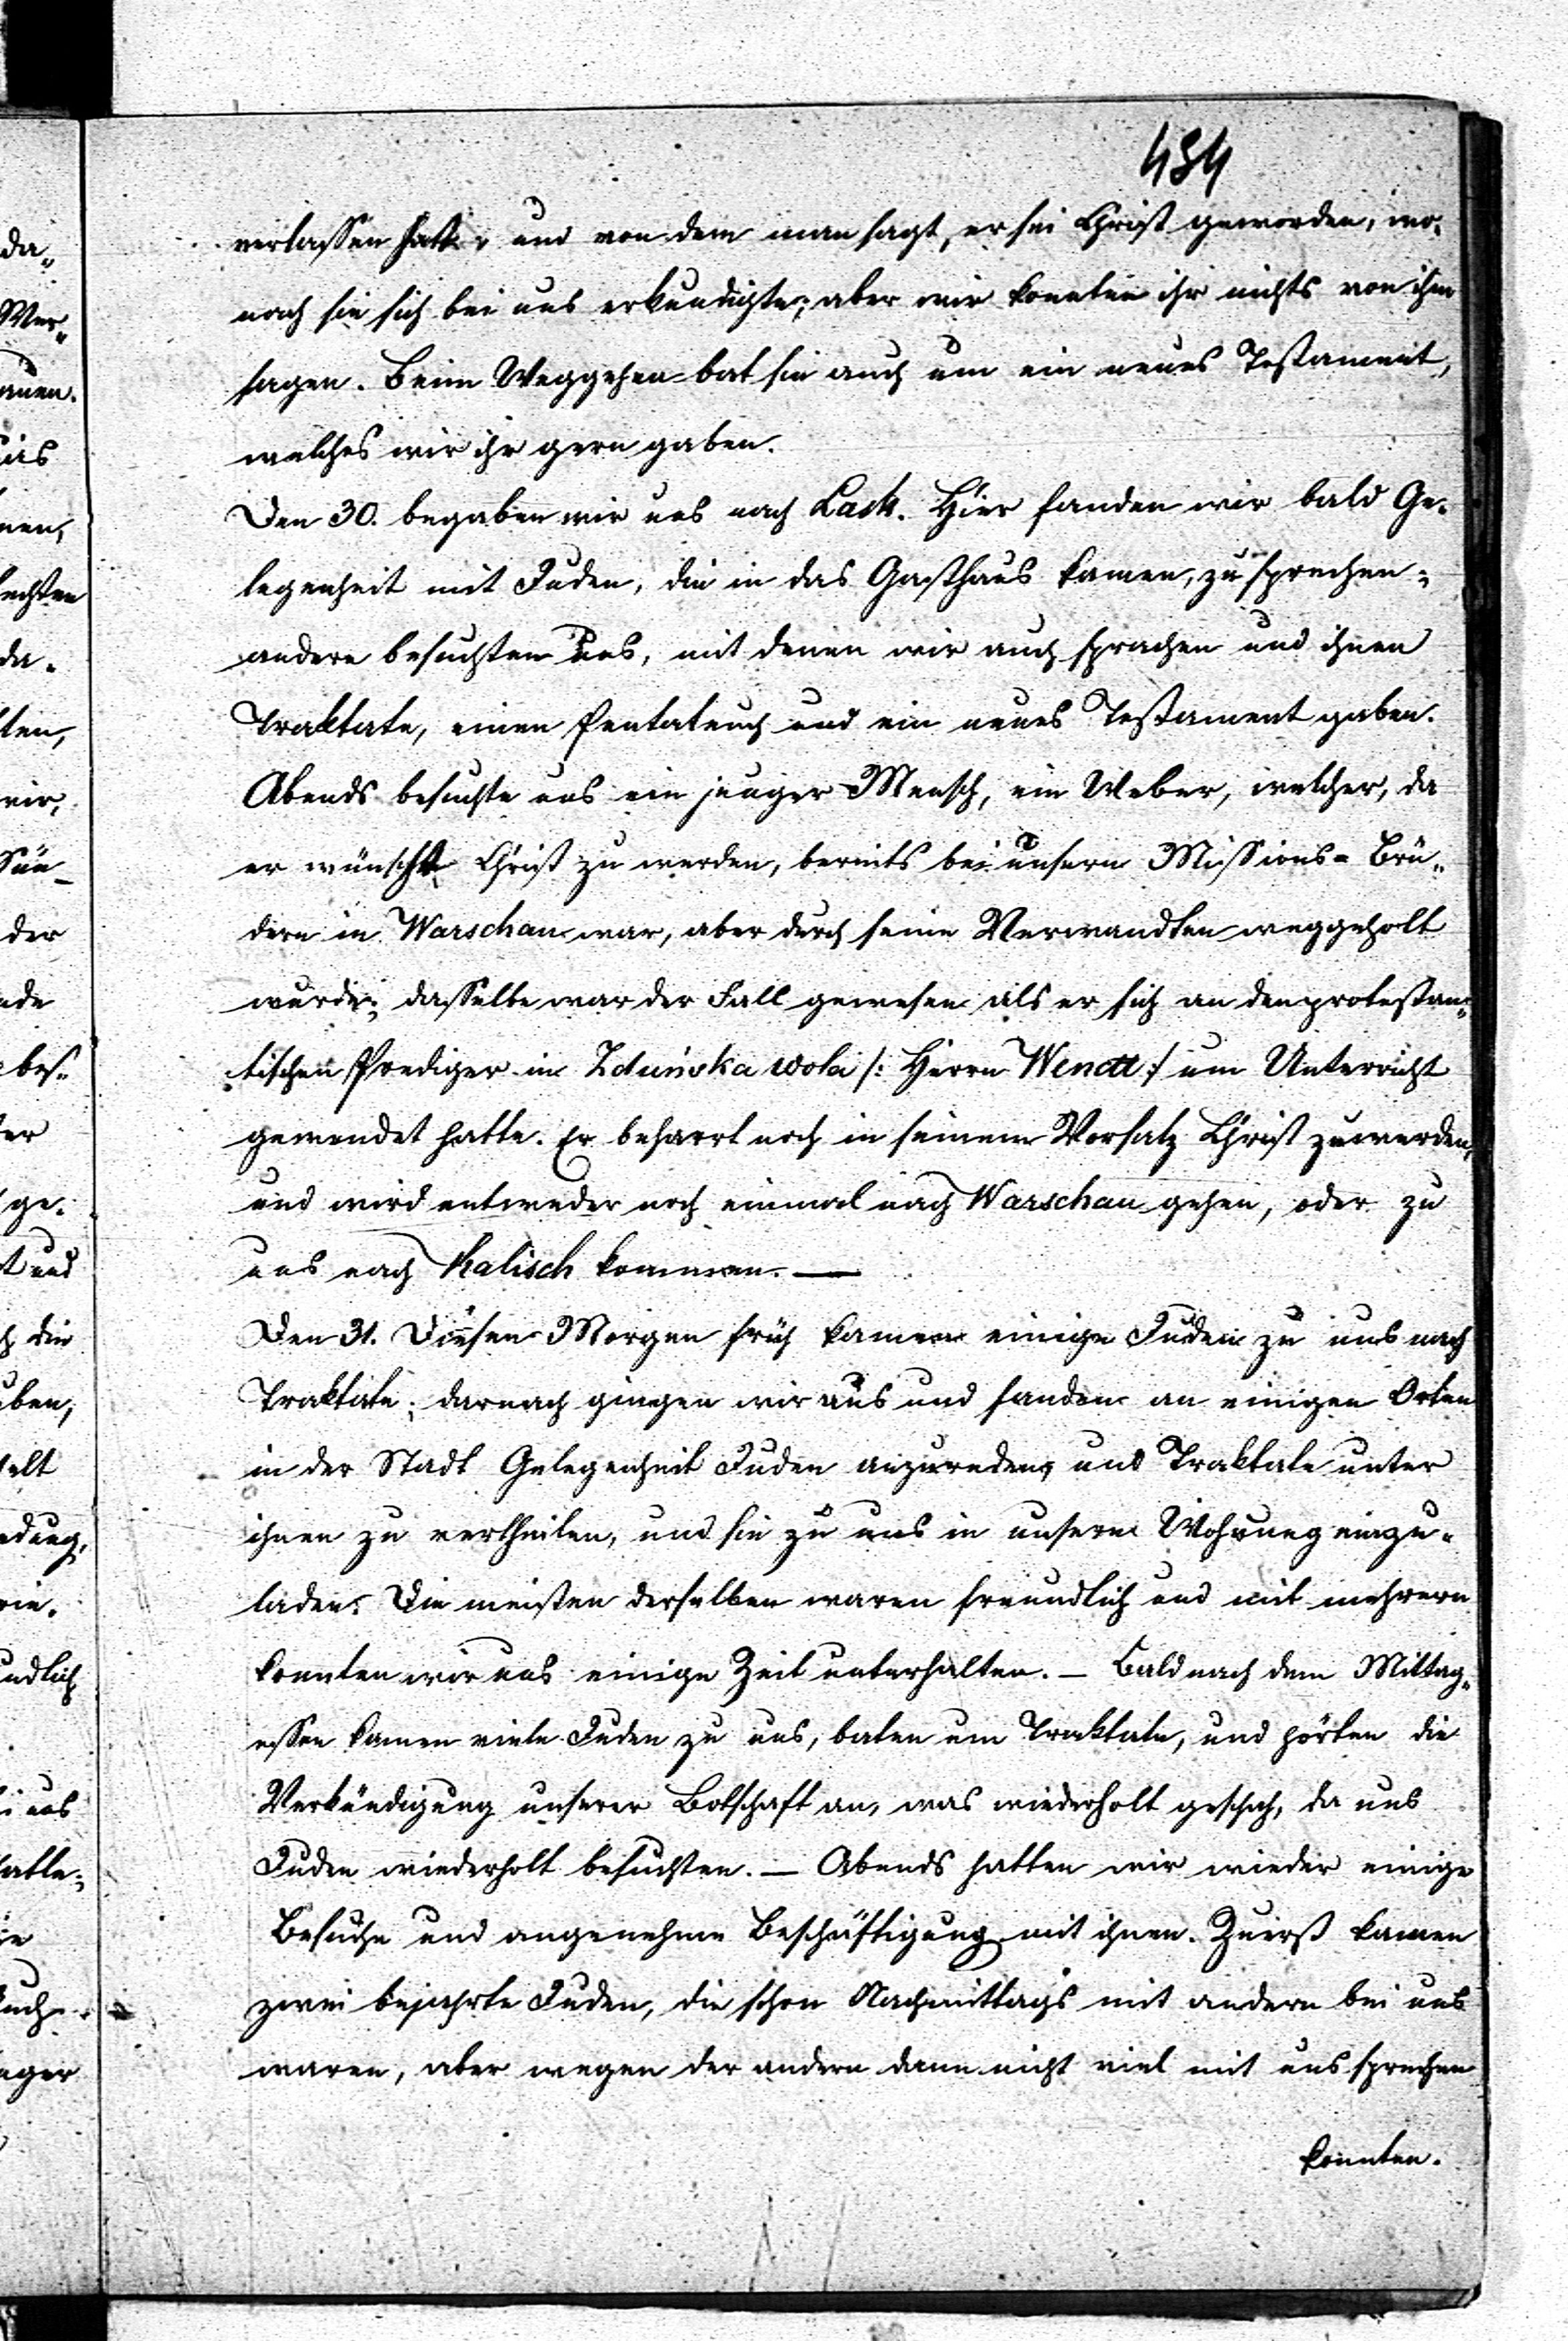 484
verlassen hatte, und von dem man sagt, er sei Christ geworden, wo¬
nach sie sich bei uns erkundigte; aber wir konnten ihr nichts von ihm
sagen. Beim Weggehen bat sie auch um ein neues Testament,
welches wir ihr gern gaben.
Den 30. begaben wir uns nach Lask. Hier fanden wir bald Ge¬
legenheit mit Juden, die in das Gasthaus kamen, zu sprechen;
andere besuchten uns, mit denen wir auch sprachen und ihnen
Traktate, einen Pentateuch und ein neues Testament gaben.
Abends besuchte uns ein junger Mensch, ein Weber, welcher, da
er wünschte Christ zu werden, bereits bei unsern Missions-Brü¬
dern in Warschau war, aber durch seine Verwandten weggeholt
wurde; dasselbe war der Fall gewesen als er sich an den protestan¬
tischen Prediger in Zduńska wola /: Herrn Wendt :/ um Unterricht
gewendet hatte. Er beharrt noch in seinem Vorsatz Christ zu werden,
und wird entweder noch einmal nach Warschau gehen, oder zu
uns nach Kalisch kommen. —
Den 31. Diesen Morgen früh kamen einige Juden zu uns nach
Traktate; darnach gingen wir aus und fanden an einigen Orten
in der Stadt Gelegenheit Juden anzureden, und Traktate unter
ihnen zu vertheilen, und sie zu uns in unsere Wohnung einzu¬
laden. Die meisten derselben waren freundlich und mit mehrern
konnten wir uns einige Zeit unterhalten. — Bald nach dem Mittag¬
essen kamen viele Juden zu uns, baten um Traktate, und hörten die
Verkündigung unserer Botschaft an, was wiederholt geschah, da uns
Juden wiederholt besuchten. — Abends hatten wir wieder einige
Besuche und angenehme Beschäftigung mit ihnen. Zuerst kamen
zwei bejahrte Juden, die schon Nachmittags mit andern bei uns
waren, aber wegen der andern dann nicht viel mit uns sprechen
konnten.